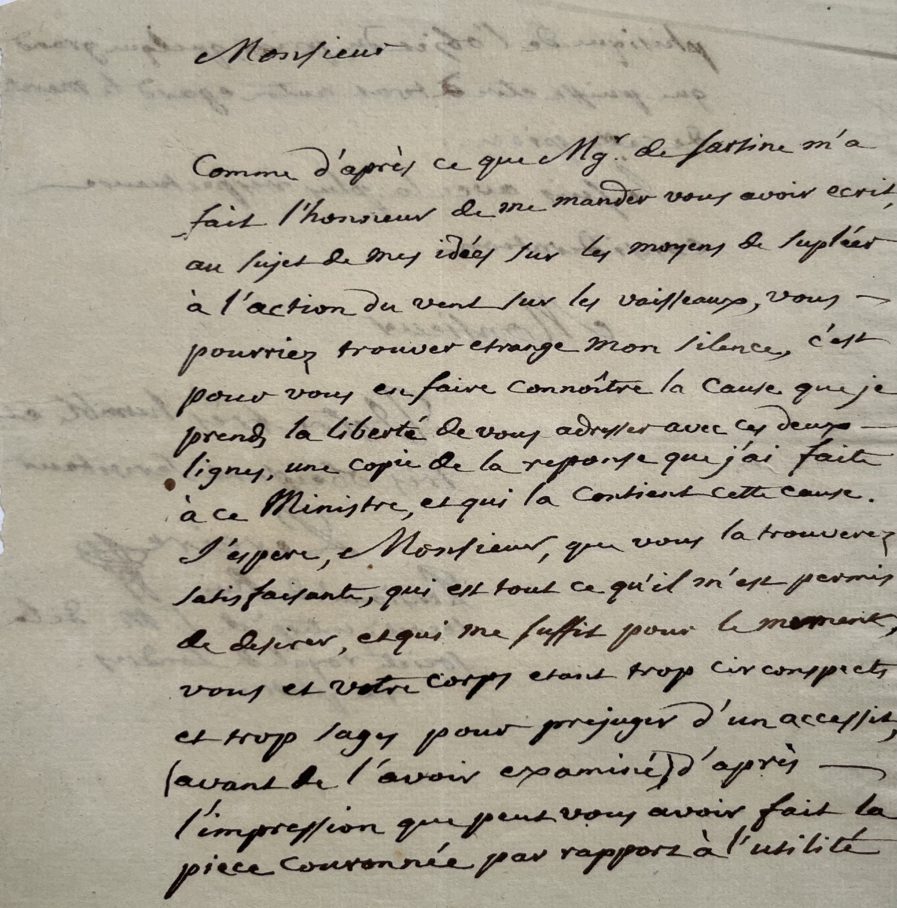 Monsieur
Comme d'après ce que Mgr. de Sartine m'a
fait l'honneur de me mander vous avoir ecrit,
au sujet de mes idées sur les moyens de supléer
à l'action du vent sur les vaisseaux, vous —
pourriez trouver etrange mon silence, c'est
pour vous en faire connoître la cause que je
prends la liberté de vous adresser avec ces deux —
lignes, une copie de la reponse que j'ai faite
à ce Ministre, et qui la contient cette cause.
J'espere, Monsieur, que vous la trouverez
satisfaisante, qui est tout ce qu'il m'est permis
de desirer, et qui me suffit pour le moment,
vous et votre corps etant trop circonspects
et trop sages pour prejuger d'un accessit,
(avant de l'avoir examiné) d'après —
l'impression que peut vous avoir fait la
piece couronnée par rapport à l'utilité